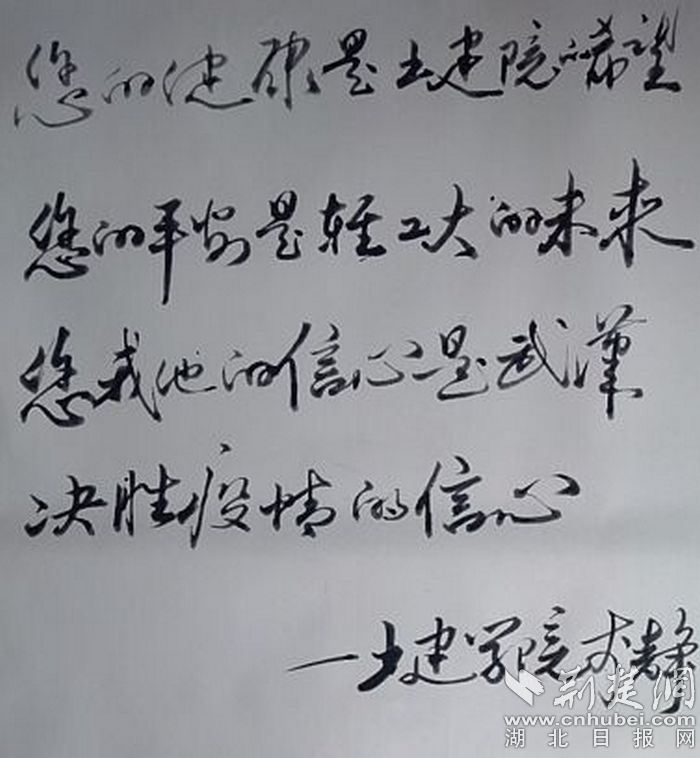 您的健康是土建院的希望
您的平安是轻工大的未来
您我他的信心是武漢
决胜疫情的信心
一土建学院 静
荆楚网
www.cnhubei.com
湖北日报网